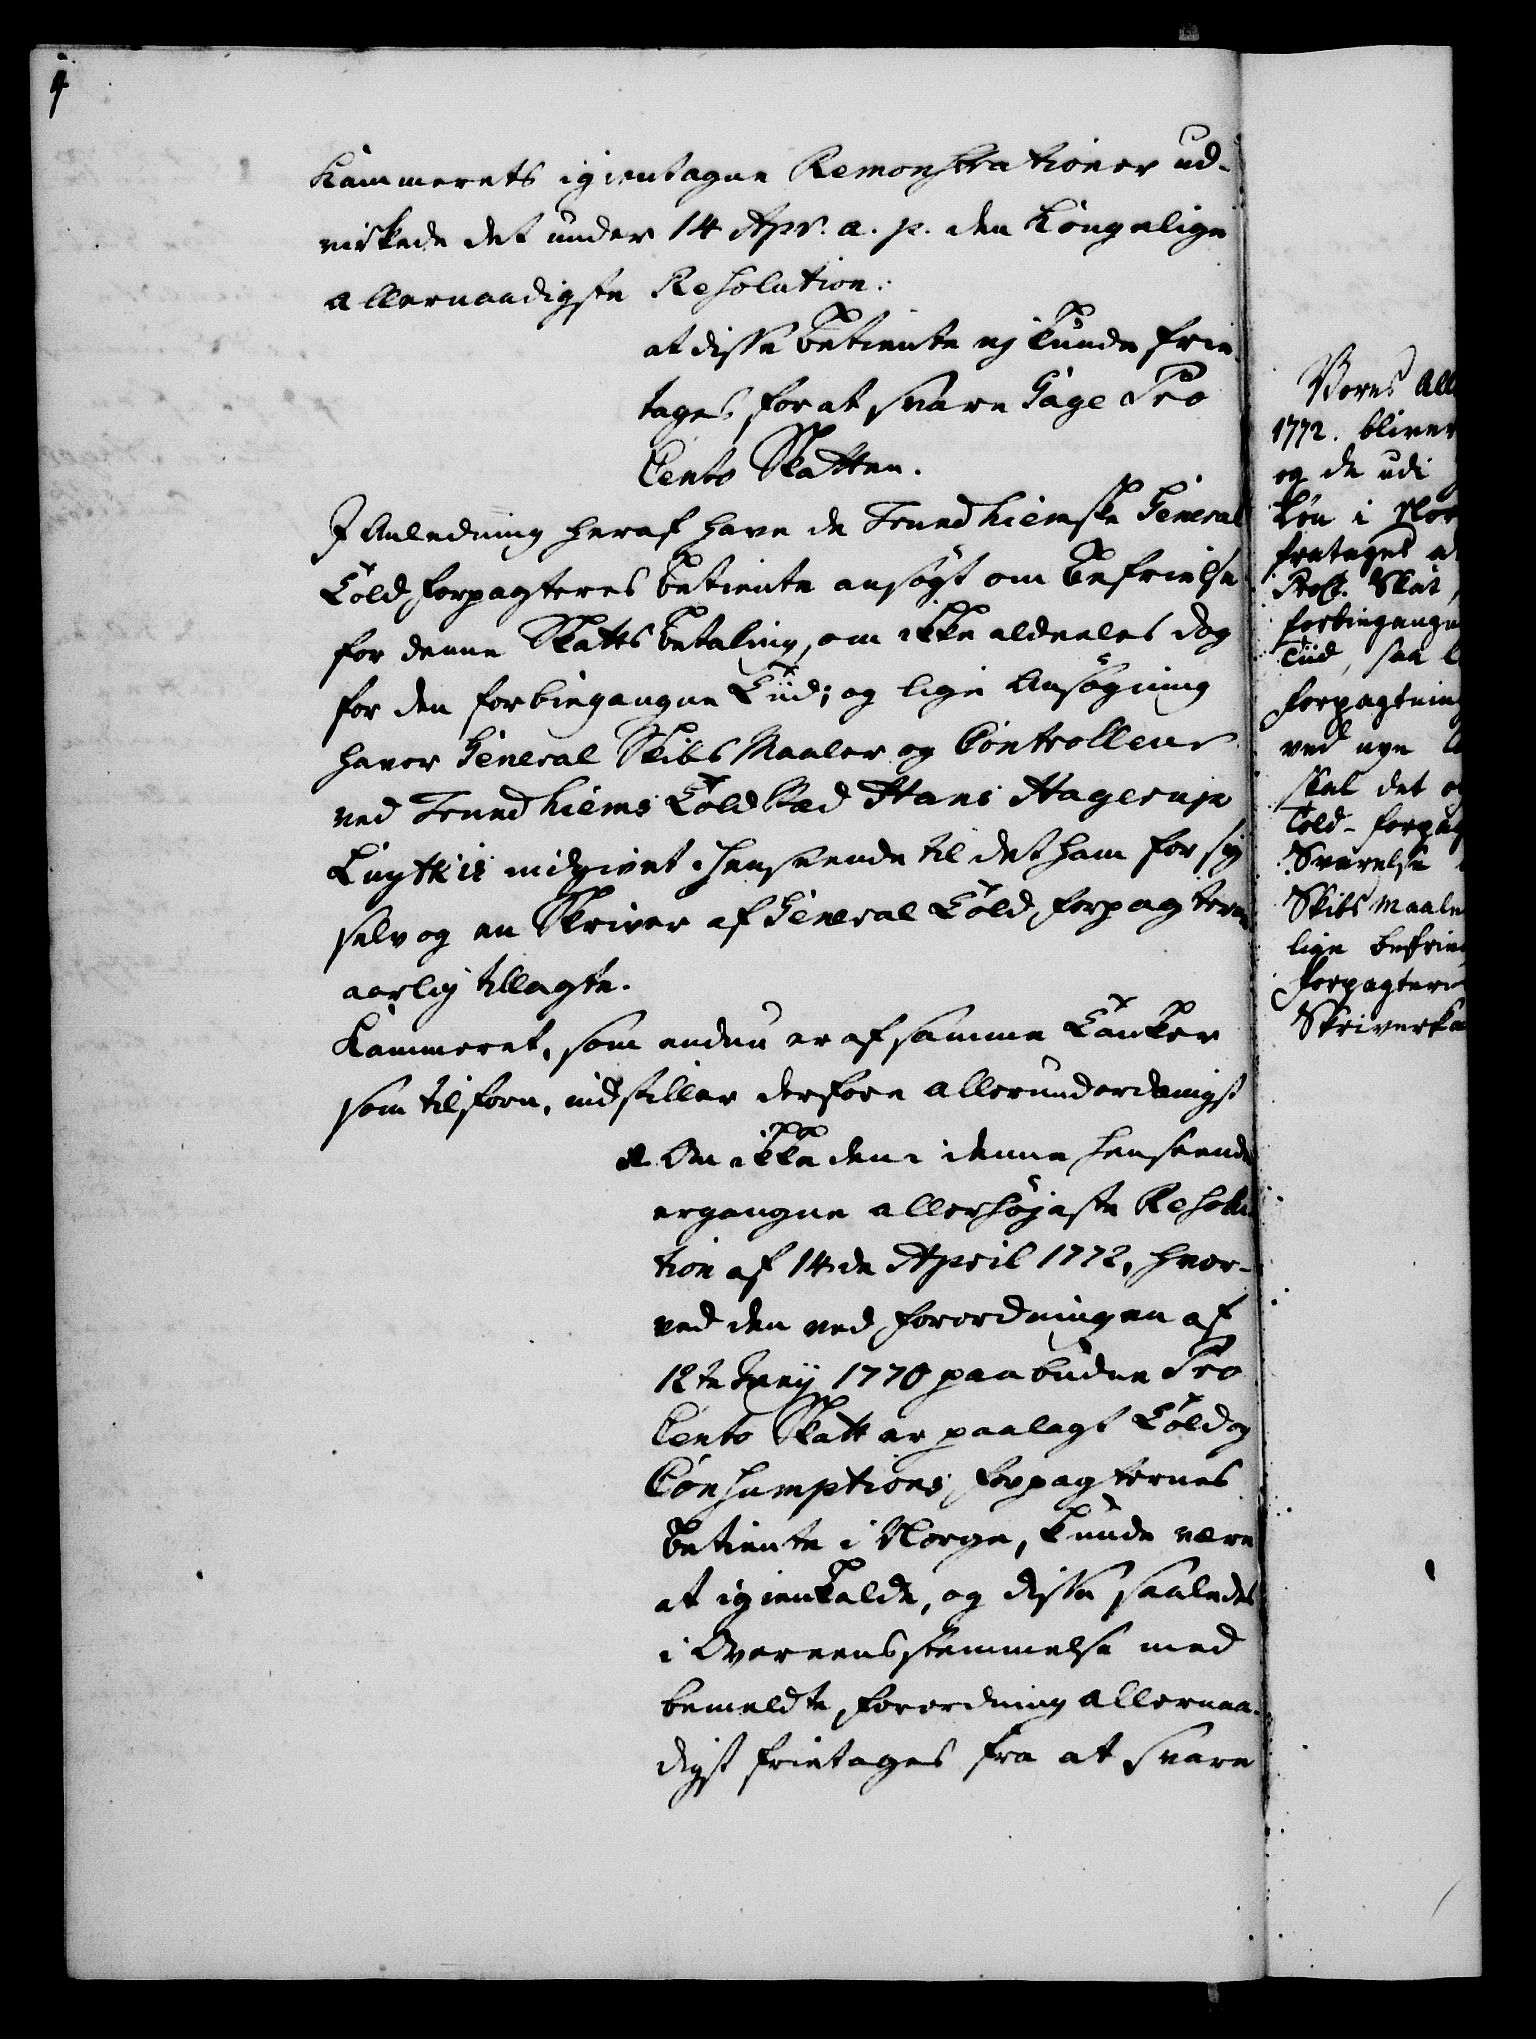 4
Kammerets igientagne Remonstrationer ud-
virkede det under 14 Apr. a. p. den Kongelige
allernaadigste Resolution:
at disse Betiente ej kunde frie
tages for at svare Gage Pro
Cento Skatten.
I Anledning heraf have de Trundhiemske General
Told forpagteres Betiente ansøgt om Befrielse
for denne Skatts Betaling, om ikke aldeeles dog
for den forbigangne Tiid; og lige Ansøgning
haver General Skibs Maaler og Controlleur
ved Trundhiems Toldsted Hans Hagerup
Lüytkis indgivet i Henseende til det ham for sig
selv og en Skriver af General Told forpagterne
aarlig tillagte.
Kammeret, som endnu er af samme Tanker
som tilforn, indstiller derfore allerunderdanigst
Om ikke den i denne Henseende
ergangne allerhøjeste Resolu
tion af 14de April 1772, hvor-
ved den ved Forordningen af
12te 1770 paabudne Pro
Cento Skatt er paalagt Told og
Consumptions forpagternes
Betiente i Norge, kunde være
at igienkalde, og disse saaledes
i Overeensstemmelse med
bemeldte Forordning allernaa-
digst frietages fra at svare
Vores All
1772. bliver
og de udi
in i Nor
fretages at
Skat,
forbigangne
Tiid, saa
forpagtning
ved nye
skal det og
Told-forpag
Svarelse
Skibs Maaler
lige befrie
forpagtere
Skriverka